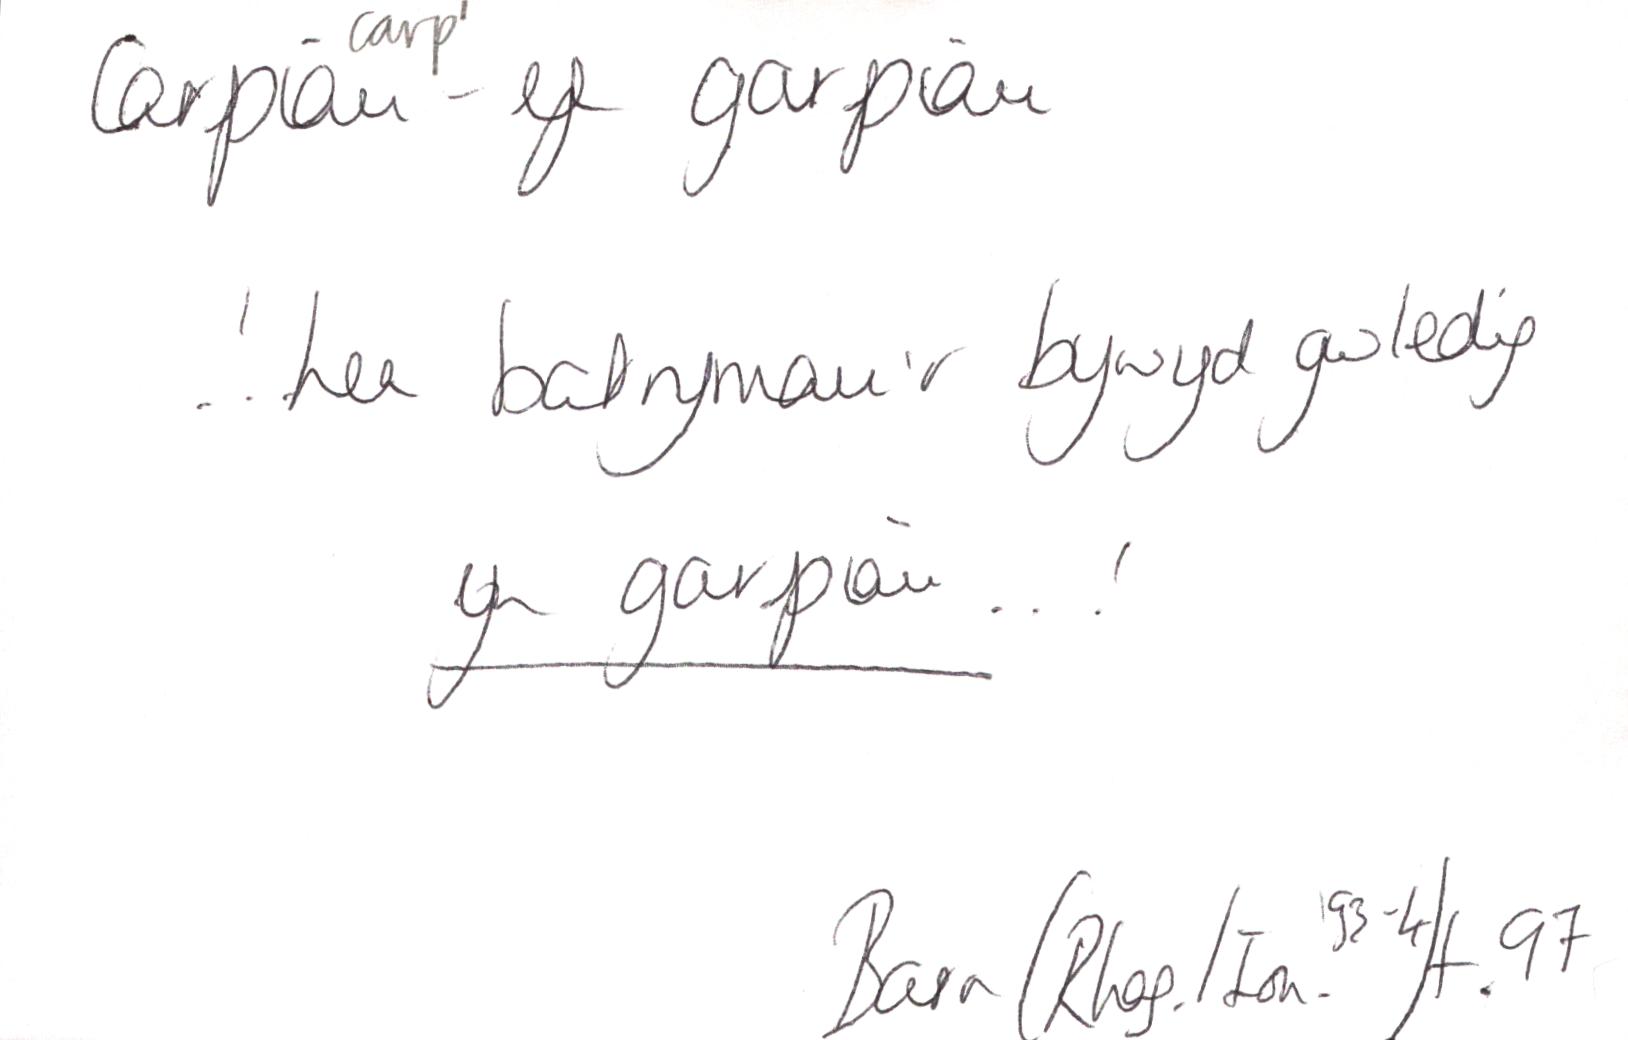 carp'
Carpiau - yn garpiau
'... hen batrymau'r bywyd gwledig
yn garpiau ...'
Barn (Rhag./Ion. '93-4) t. 97